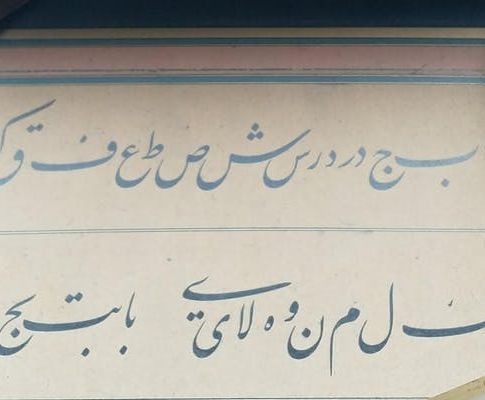 ب ج د ر د ر س ش ص ط ع ف ق ک
ل م ن و ه لا ی ے با بت بج